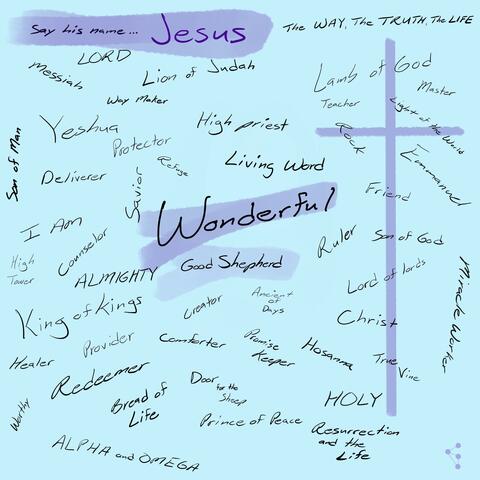 Say his name... Jesus
The WAY, The TRUTH, The LIFE
LORD
Messiah
Lion of Judah
Lamb of God
Master
Way Maker
Teacher
Light of the World
Son of Man
Yeshua
Protector
High priest
Rock
Emmanuel
Refuge
Living Word
Deliverer
Savior
Friend
Wonderful
I Am
Counselor
Ruler
Son of God
High
Tower
ALMIGHTY
Good Shepherd
Lord of lords
Miracle Worker
King of Kings
Creator
Ancient
of
Days
Christ
Healer
Provider
Comforter
Promise
Keeper
Hosanna
True
Vine
Redeemer
Door
for the
Sheep
Worthy
Bread of
Life
HOLY
Prince of Peace
Resurrection
and the
Life
ALPHA and OMEGA